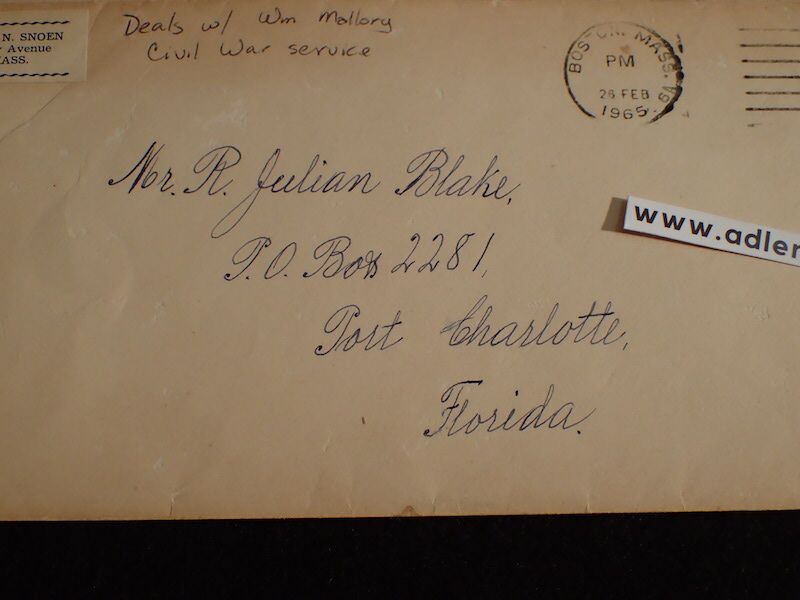 N. SNOEN
Avenue
ASS.
Deals w/ Wm Mallory
Civil War service
BOSTON, MASS.
PM
26 FEB
1965
Mr. R. Julian Blake,
P.O. Box 2281,
Port Charlotte,
Florida.
www.adler